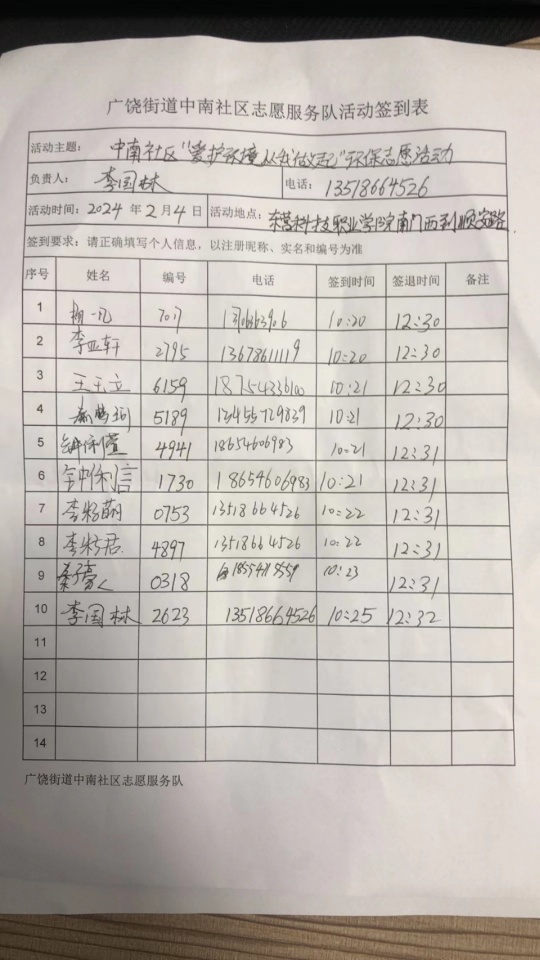 广饶街道中南社区志愿服务队活动签到表
活动主题： 中南社区"爱护环境从我做起"环保志愿活动
负责人： 李国林 电话： 13518664526
活动时间：2024 年 2 月 4 日 活动地点：东营科技职业学院南门西到顺安路
签到要求：请正确填写个人信息，以注册昵称、实名和编号为准
序号 姓名 编号 电话 签到时间 签退时间 备注
1 杨一凡 7017 10:20 12:30
2 李亚轩 2795 13678611119 10:20 12:30
3 6159 18754336100 10:21 12:30
4 5189 13455729839 10:21 12:30
5 钟利萱 4941 18654606983 10:21 12:31
6 钟利言 1730 18654606983 10:21 12:31
7 李籽萌 0753 13518664526 10:22 12:31
8 李籽君 4897 13518664526 10:22 12:31
9 0318 10:23 12:31
10 李国林 2623 13518664526 10:25 12:32
11
12
13
14
广饶街道中南社区志愿服务队